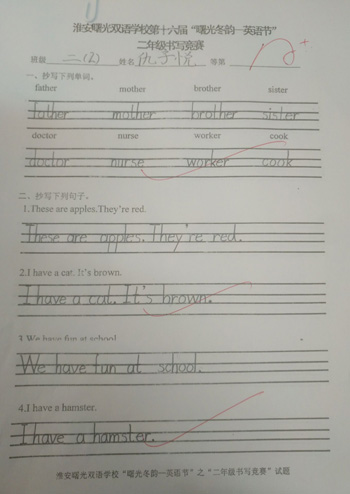 淮安曙光双语学校第十六届“曙光冬韵—英语节”
二年级书写竞赛
班级 二(2) 姓名 仇子悦 等第 A+
一、抄写下列单词。
father mother brother sister
father mother brother sister
doctor nurse worker cook
doctor nurse worker cook
二、抄写下列句子。
1.These are apples.They're red.
These are apples. They're red.
2.I have a cat. It's brown.
I have a cat. It's brown.
3.We have fun at school.
We have fun at school.
4.I have a hamster.
I have a hamster.
淮安曙光双语学校“曙光冬韵—英语节”之“二年级书写竞赛”试题